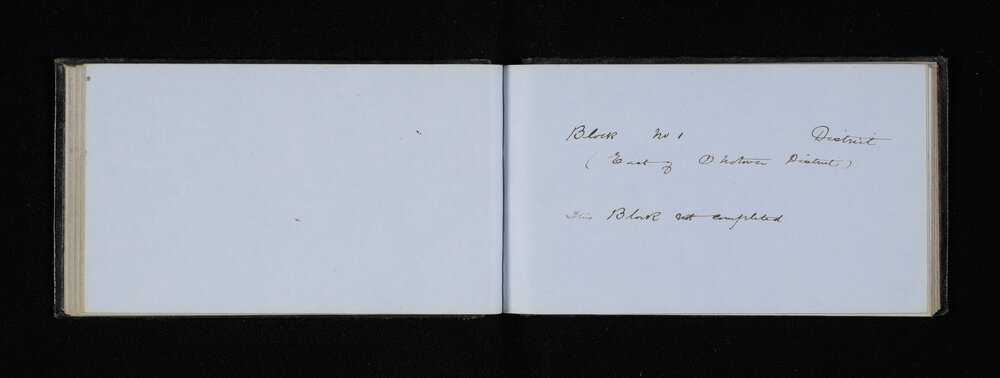 Block No 1 District
(East of Shotover District)
This Block not completed